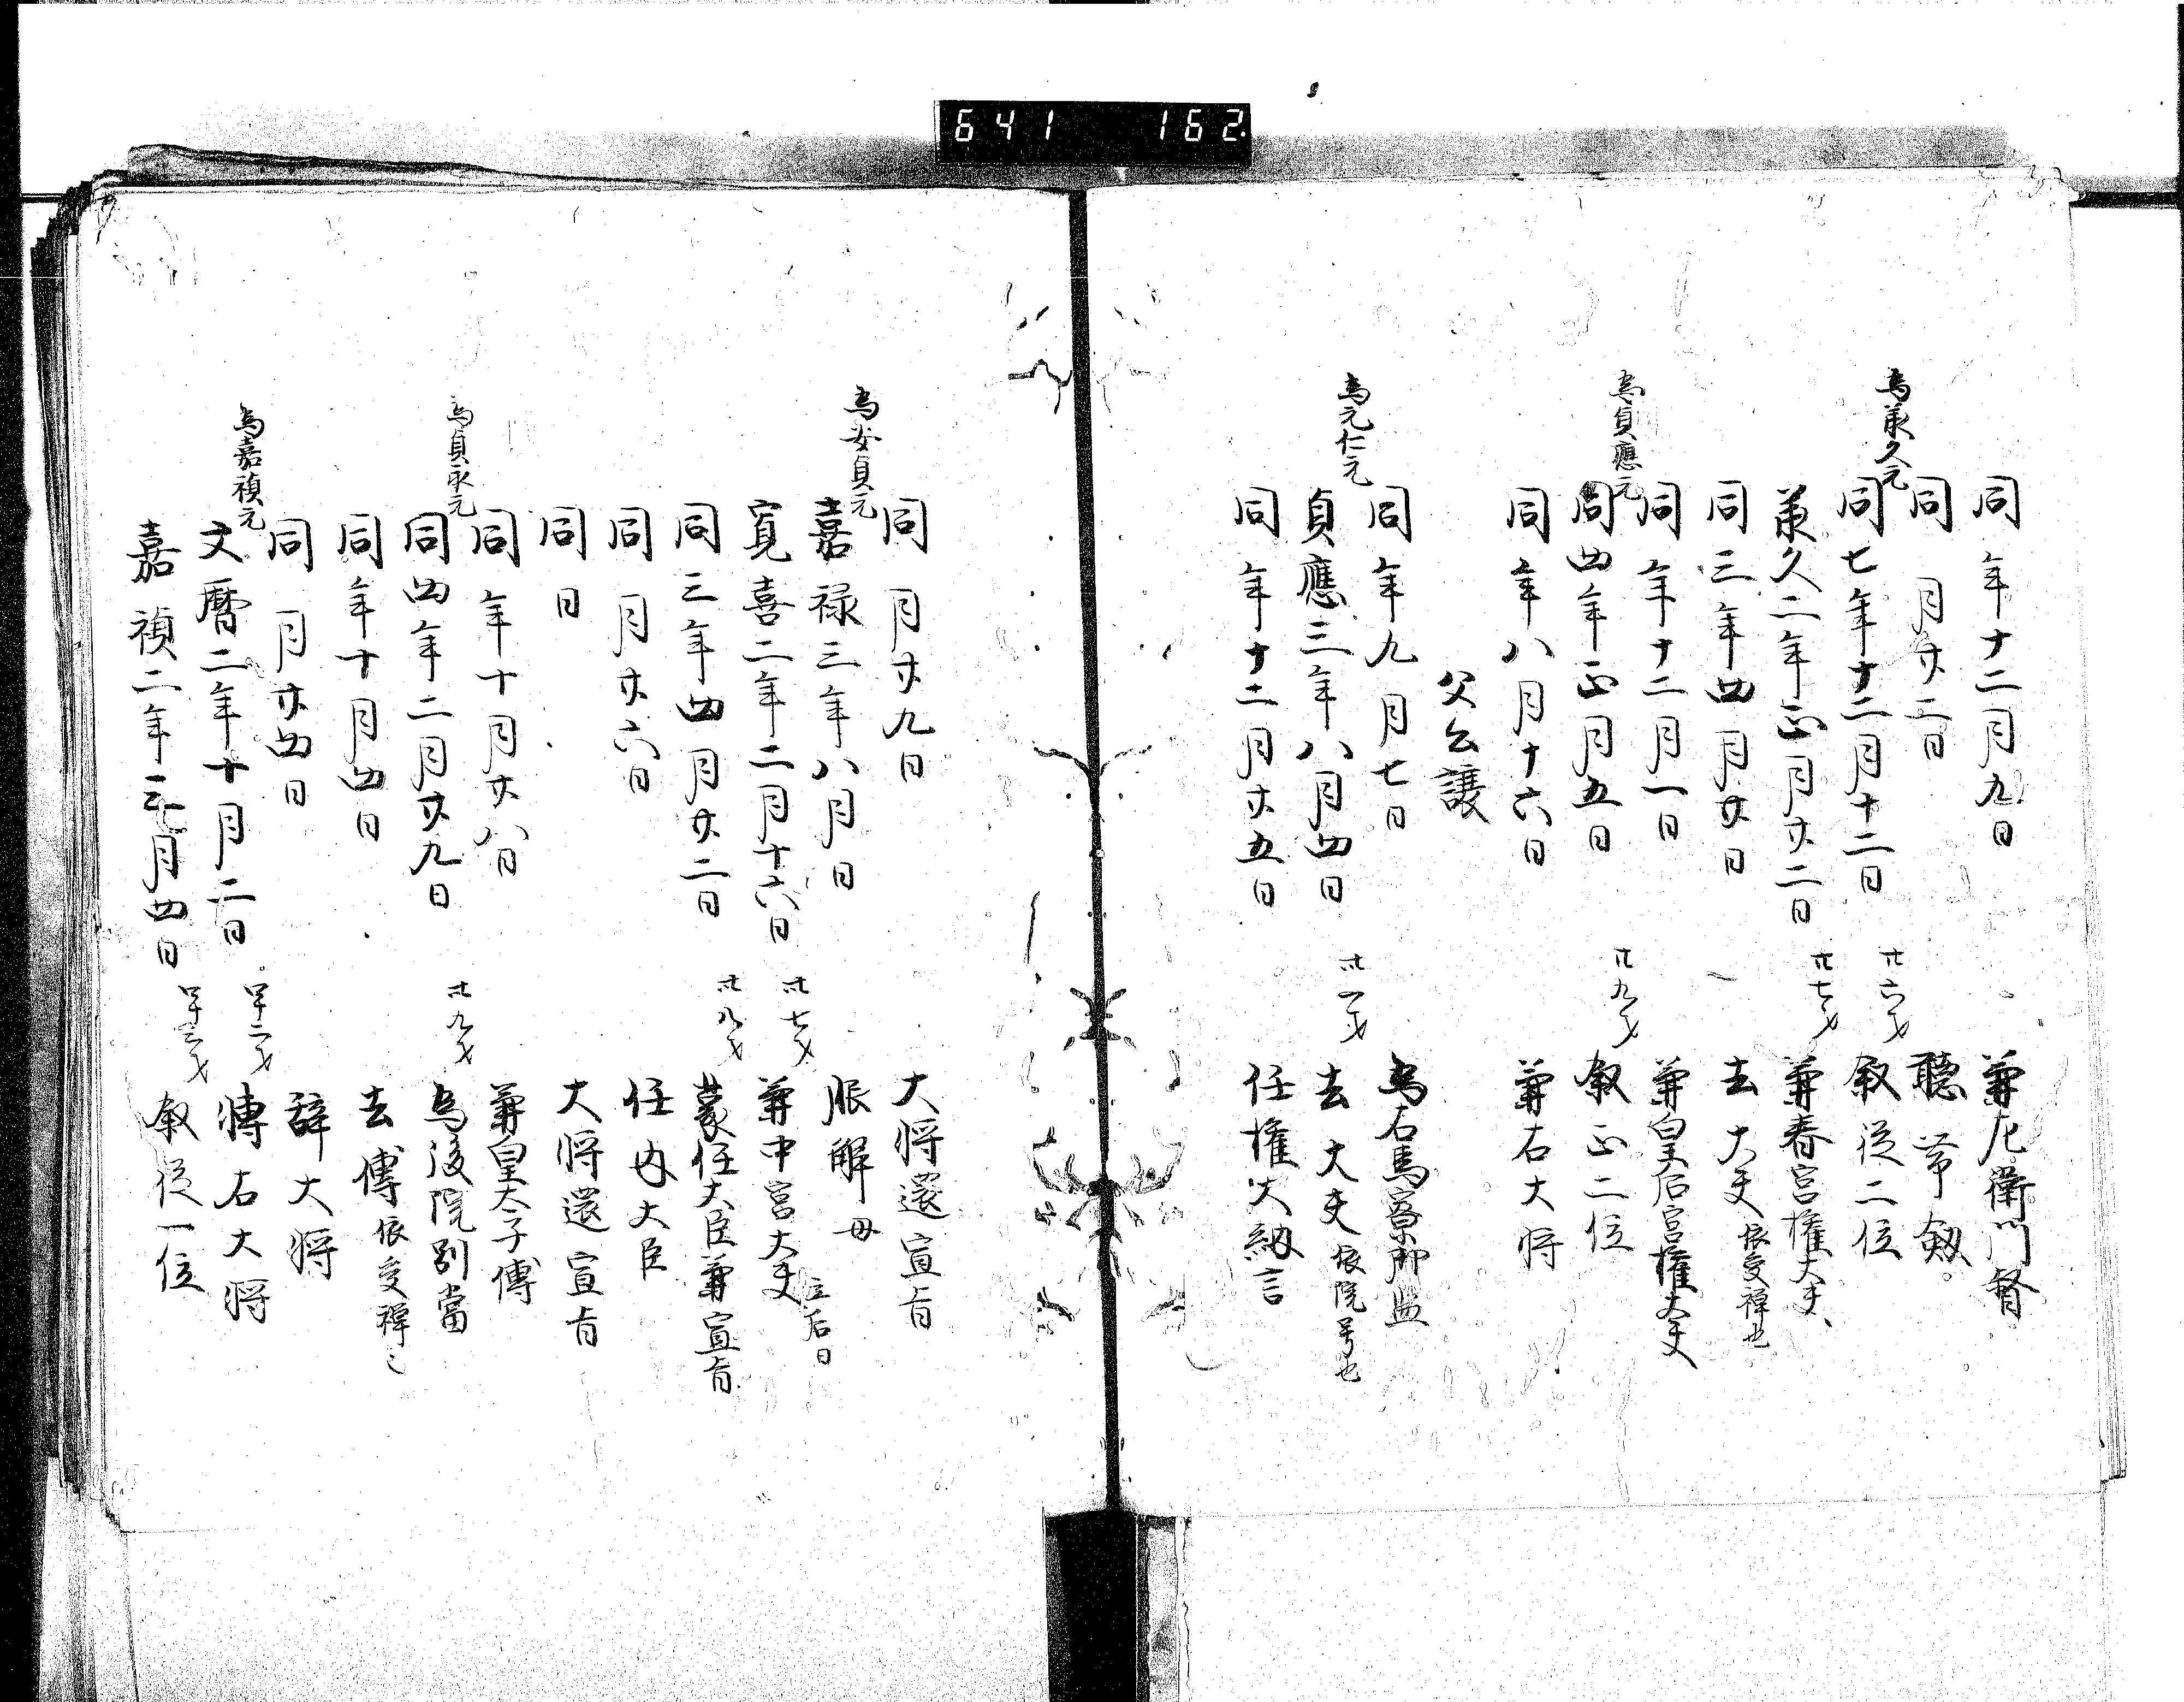 641 162
同年十二月九日 兼左衛門督
同 月廿二日 聴帯劔
為承久元
同七年十二月十二日 廿六才 叙従二位
承久二年正月廿二日 廿七才 兼春宮権大夫
同三年四月廿日 去大夫 依受禅也
同年十二月一日 兼皇后宮権大夫
為貞應元
同四年正月五日 廿九才 叙正二位
同年八月十六日 兼右大将
父公譲
同年九月七日 為右馬寮御監
為元仁元
貞應三年八月四日 卅一才 去大夫 依院号也
同年十二月廿五日 任権大納言
同 月廿九日 大将還宣旨
為安貞元
嘉禄三年八月 日 服解 母
寛喜二年二月十六日 卅七才 兼中宮大夫 立后日
同三年四月廿二日 卅八才 蒙任大臣兼宣旨
同 月廿六日 任内大臣
同日 大将還宣旨
同年十月廿八日 兼皇太子傅
為貞永元
同四年二月廿九日 卅九才 為後院別當
同年十月四日 去傅 依受禅之
同 月廿四日 辞大将
為嘉禎元
文暦二年十月二日 四十二才 轉右大将
嘉禎二年二月四日 四十三才 叙従一位